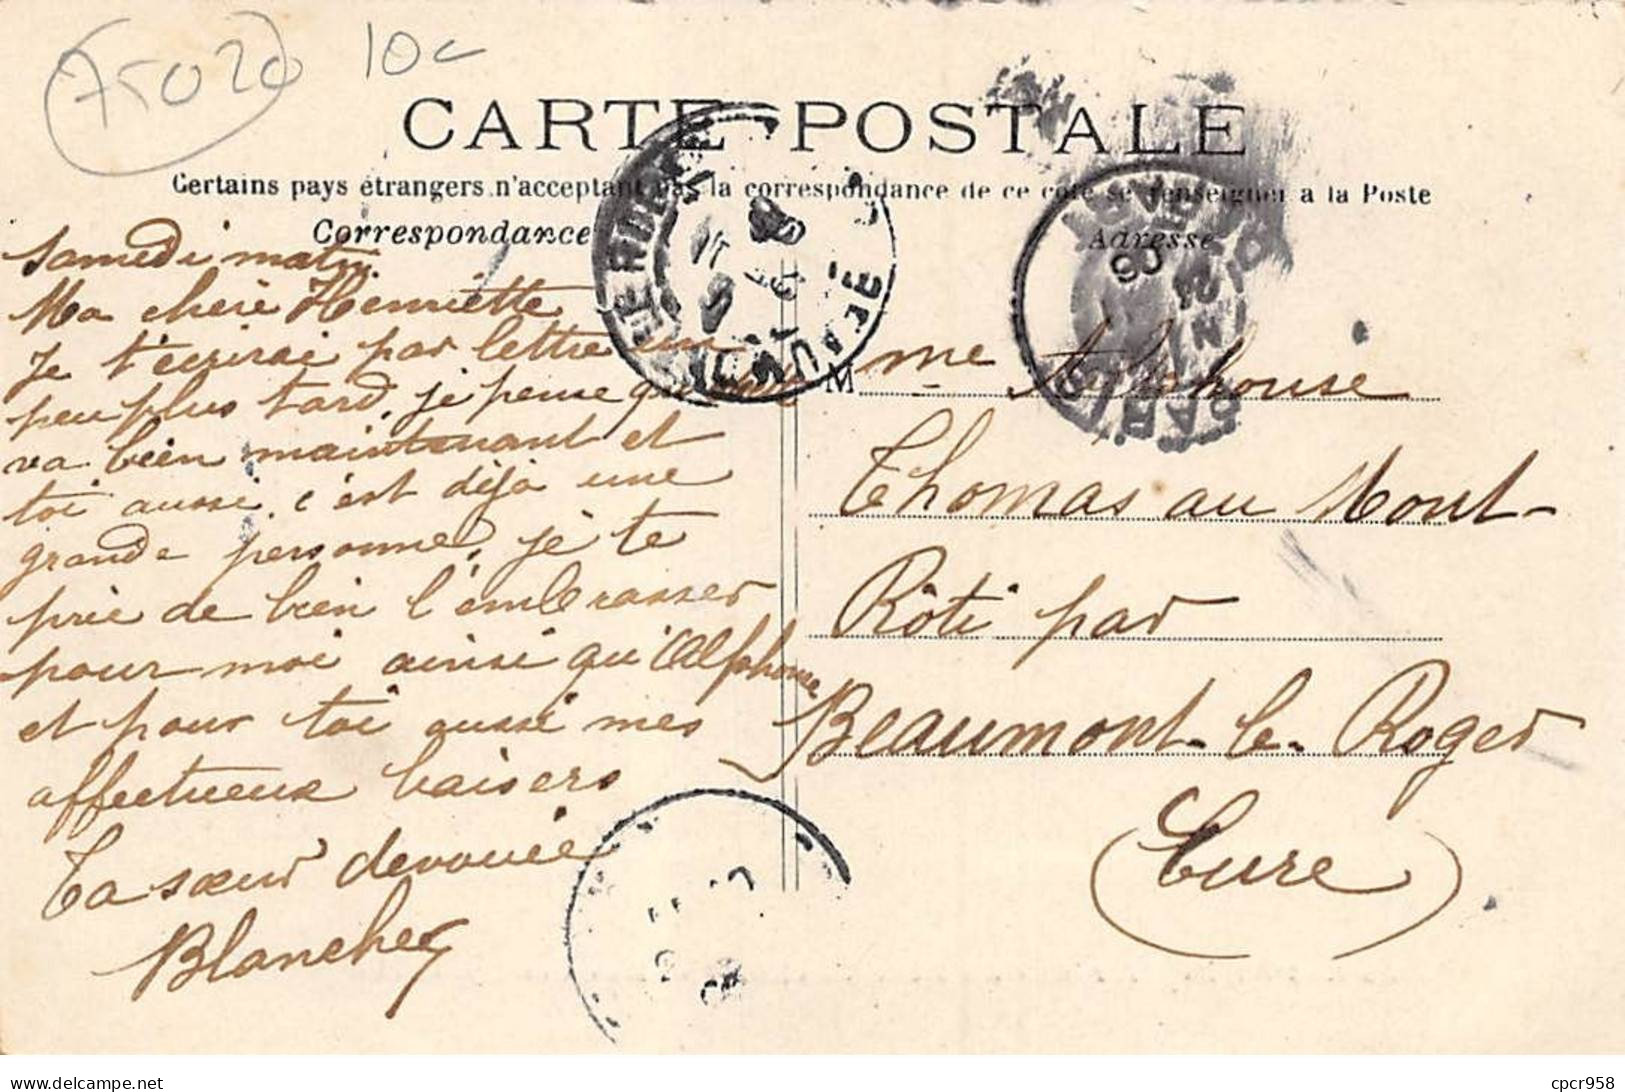 75020 10c
CARTE POSTALE
Certains pays étrangers n'acceptant pas la correspondance de ce coté se renseigner a la Poste
Correspondance
Adresse
Samedi matin
Ma chère Henriette
Je t'ecrirai par lettre un
peu plus tard, je pense que tout
va bien maintenant et
toi aussi, c'est déjà une
grande personne, je te
prie de bien l'embrasser
pour moi ainsi qu'Alphonse
et pour toi aussi mes
affectueux baisers
Ta sœur dévouée
Blanche
M me Alphonse
Thomas au Mont-
Rôti par
Beaumont-le-Roger
(Eure)
www.delcampe.net
cpcr958